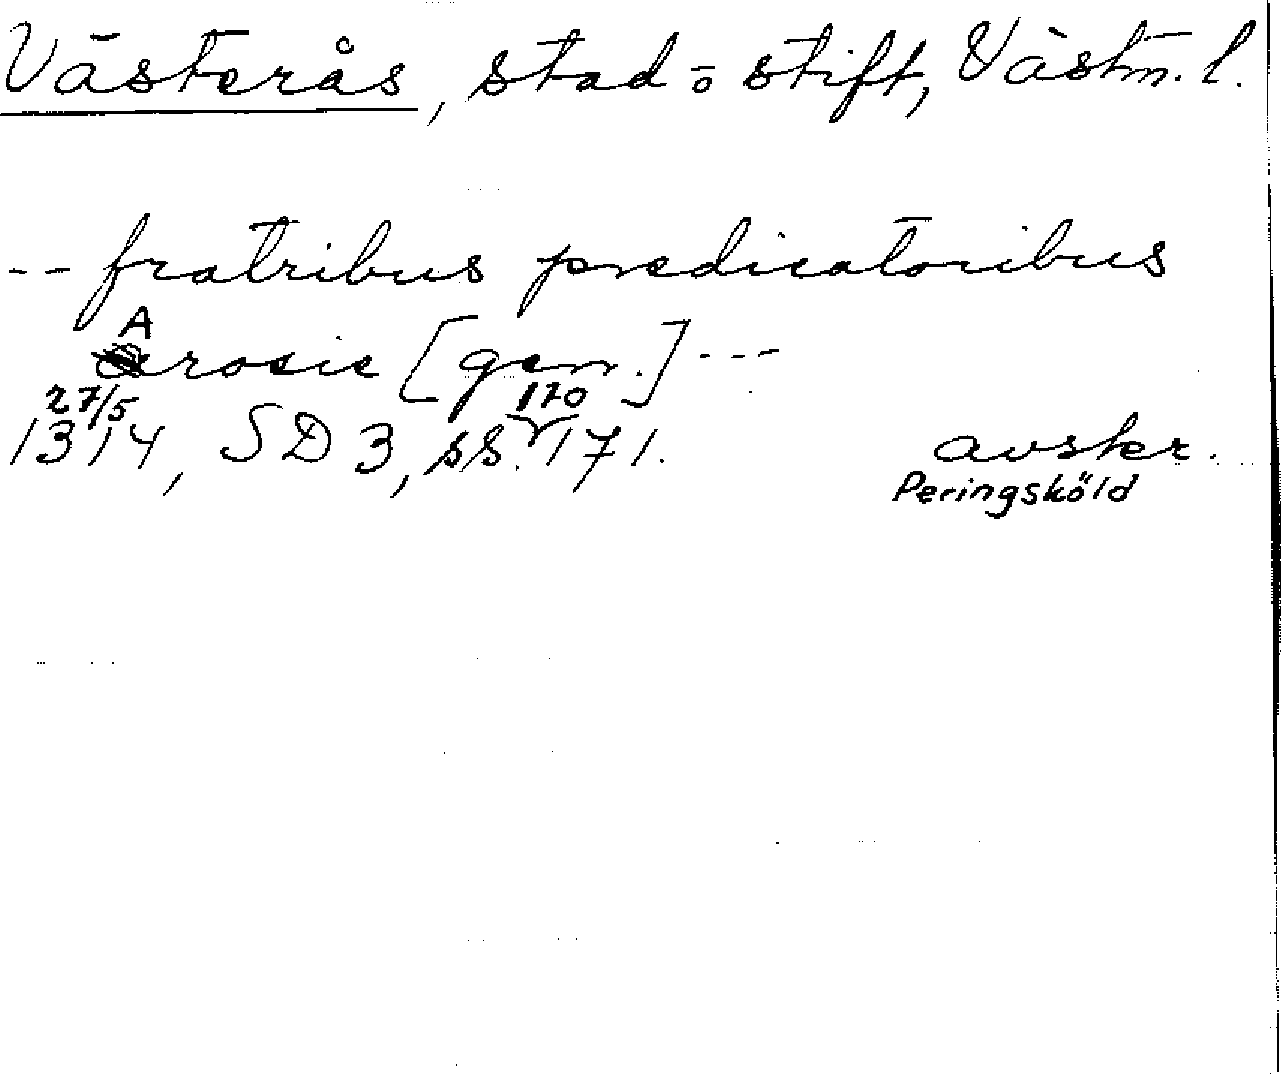 Västerås, stad o stift, Västm. l.
-- fratribus predicatoribus
Arosie [gen.] ---
27/5 1314, SD 3, ss. 170 171.
avskr.
Peringsköld